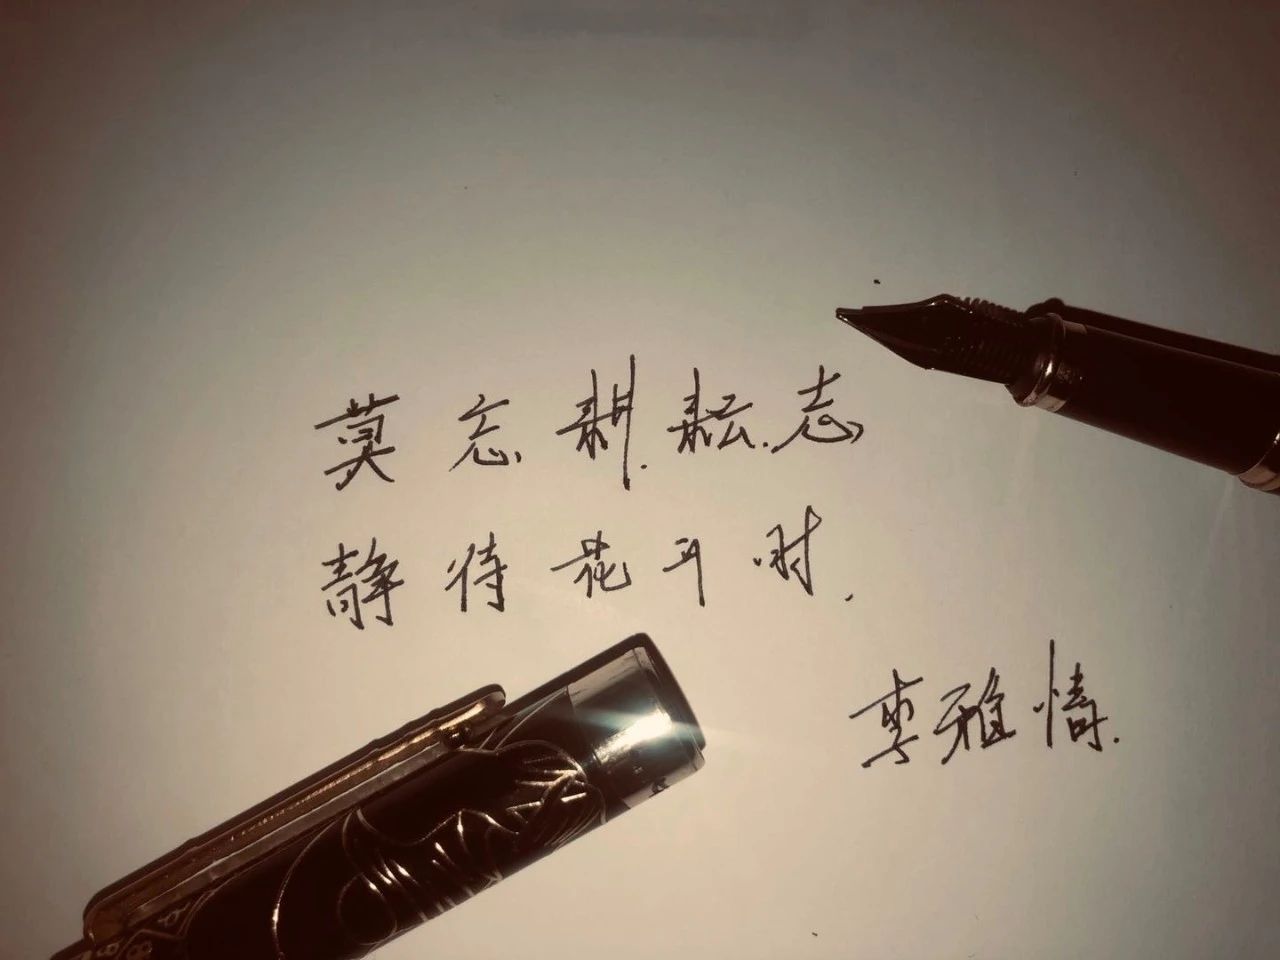 莫忘耕耘志
静待花开时.
李雅情.